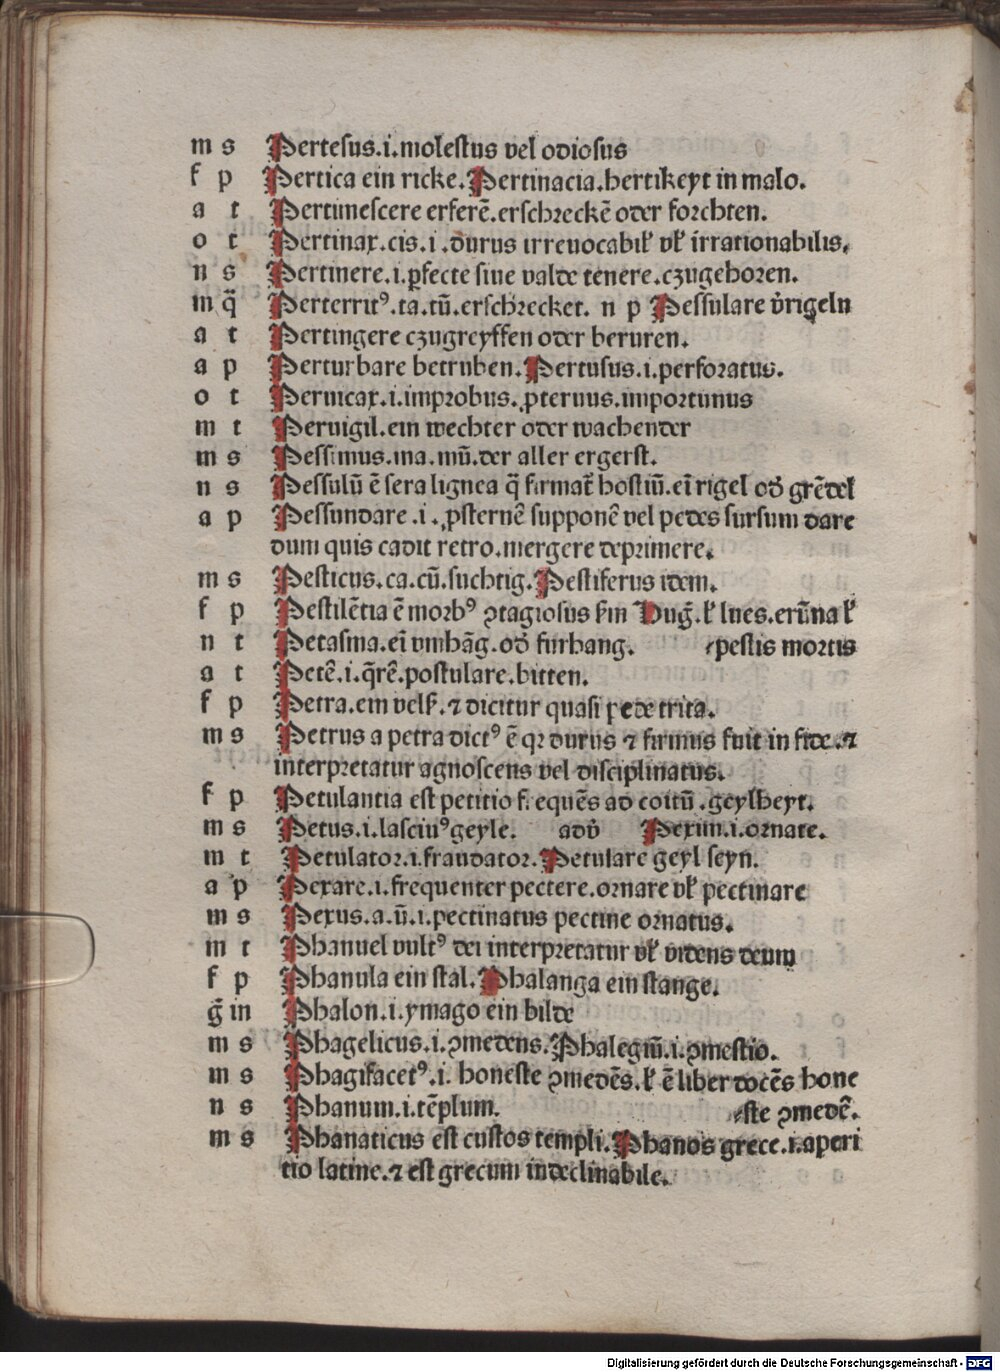 m s Pertesus.i.molestus vel odiosus
f p Pertica ein ricke.Pertinacia.hertikeyt in malo.
a t Pertimescere erferē.erschreckē oder forchten.
o t Pertinax.cis.i.durus irreuocabil̕ vl̕ irrationabilis.
n s Pertinere.i.ꝑfecte siue valde tenere.czugehoren.
m q̄ Perterritꝰ.ta.tū.erschrecket. n p Pessulare v̓rigeln
a t Pertingere czugreyffen oder beruren.
a p Perturbare betruben.Pertusus.i.perforatus.
o t Peruicax.i.improbus.ꝓteruus.importunus
m t Peruigil.ein wechter oder wachender
m s Pessimus.ma.mū.der aller ergerst.
n s Pessulū ē sera lignea q̄ firmat̄ hostiū.eī rigel od̓ grēdel
a p Pessundare.i.ꝓsternē supponē vel pedes sursum dare
dum quis cadit retro.mergere deprimere.
m s Pesticus.ca.cū.suchtig.Pestiferus idem.
f p Pestilētia ē morbꝰ ꝯtagiosus s̄m Huḡ.l̕ lues.erūna l̕
n t Petasma.eī vmhāg.od̓ furhang. pestis mortis
a t Petē.i.q̄rē.postulare.bitten.
f p Petra.ein velſ.⁊ dicitur quasi pede trita.
m s Petrus a petra dictꝰ ē qꝛ durus ⁊ firmus fuit in fide.⁊
interpretatur agnoscens vel disciplinatus.
f p Petulantia est petitio frequēs ad coitū.geylheyt.
m s Petus.i.lasciuꝰ geyle. adv̓ Pexim.i.ornate.
m t Petulator.i.fraudator.Petulare geyl seyn.
a p Pexare.i.frequenter pectere.ornare vl̕ pectinare
m s Pexus.a.ū.i.pectinatus pectine ornatus.
m t Phanuel vultꝰ dei interpretatur vl̕ videns deum
f p Phanula ein stal.Phalanga ein stange.
ḡ in Phalon.i.ymago ein bilde
m s Phagelicus.i.ꝯmedens.Phalegiū.i.ꝯmestio.
m s Phagifacetꝰ.i.honeste ꝯmedēs.l̕ ē liber docēs hone
n s Phanum.i.tēplum. ste ꝯmedē.
m s Phanaticus est custos templi.Phanos grece.i.aperi
tio latine.⁊ est grecum indeclinabile.
Digitalisierung gefördert durch die Deutsche Forschungsgemeinschaft - DFG